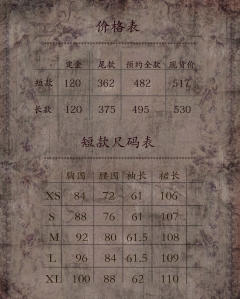 价格表
定金 尾款 预约全款 现货价
短款 120 362 482 517
长款 120 375 495 530
短款尺码表
胸围 腰围 袖长 裙长
XS 84 72 61 106
S 88 76 61 107
M 92 80 61.5 108
L 96 84 61.5 109
XL 100 88 62 110